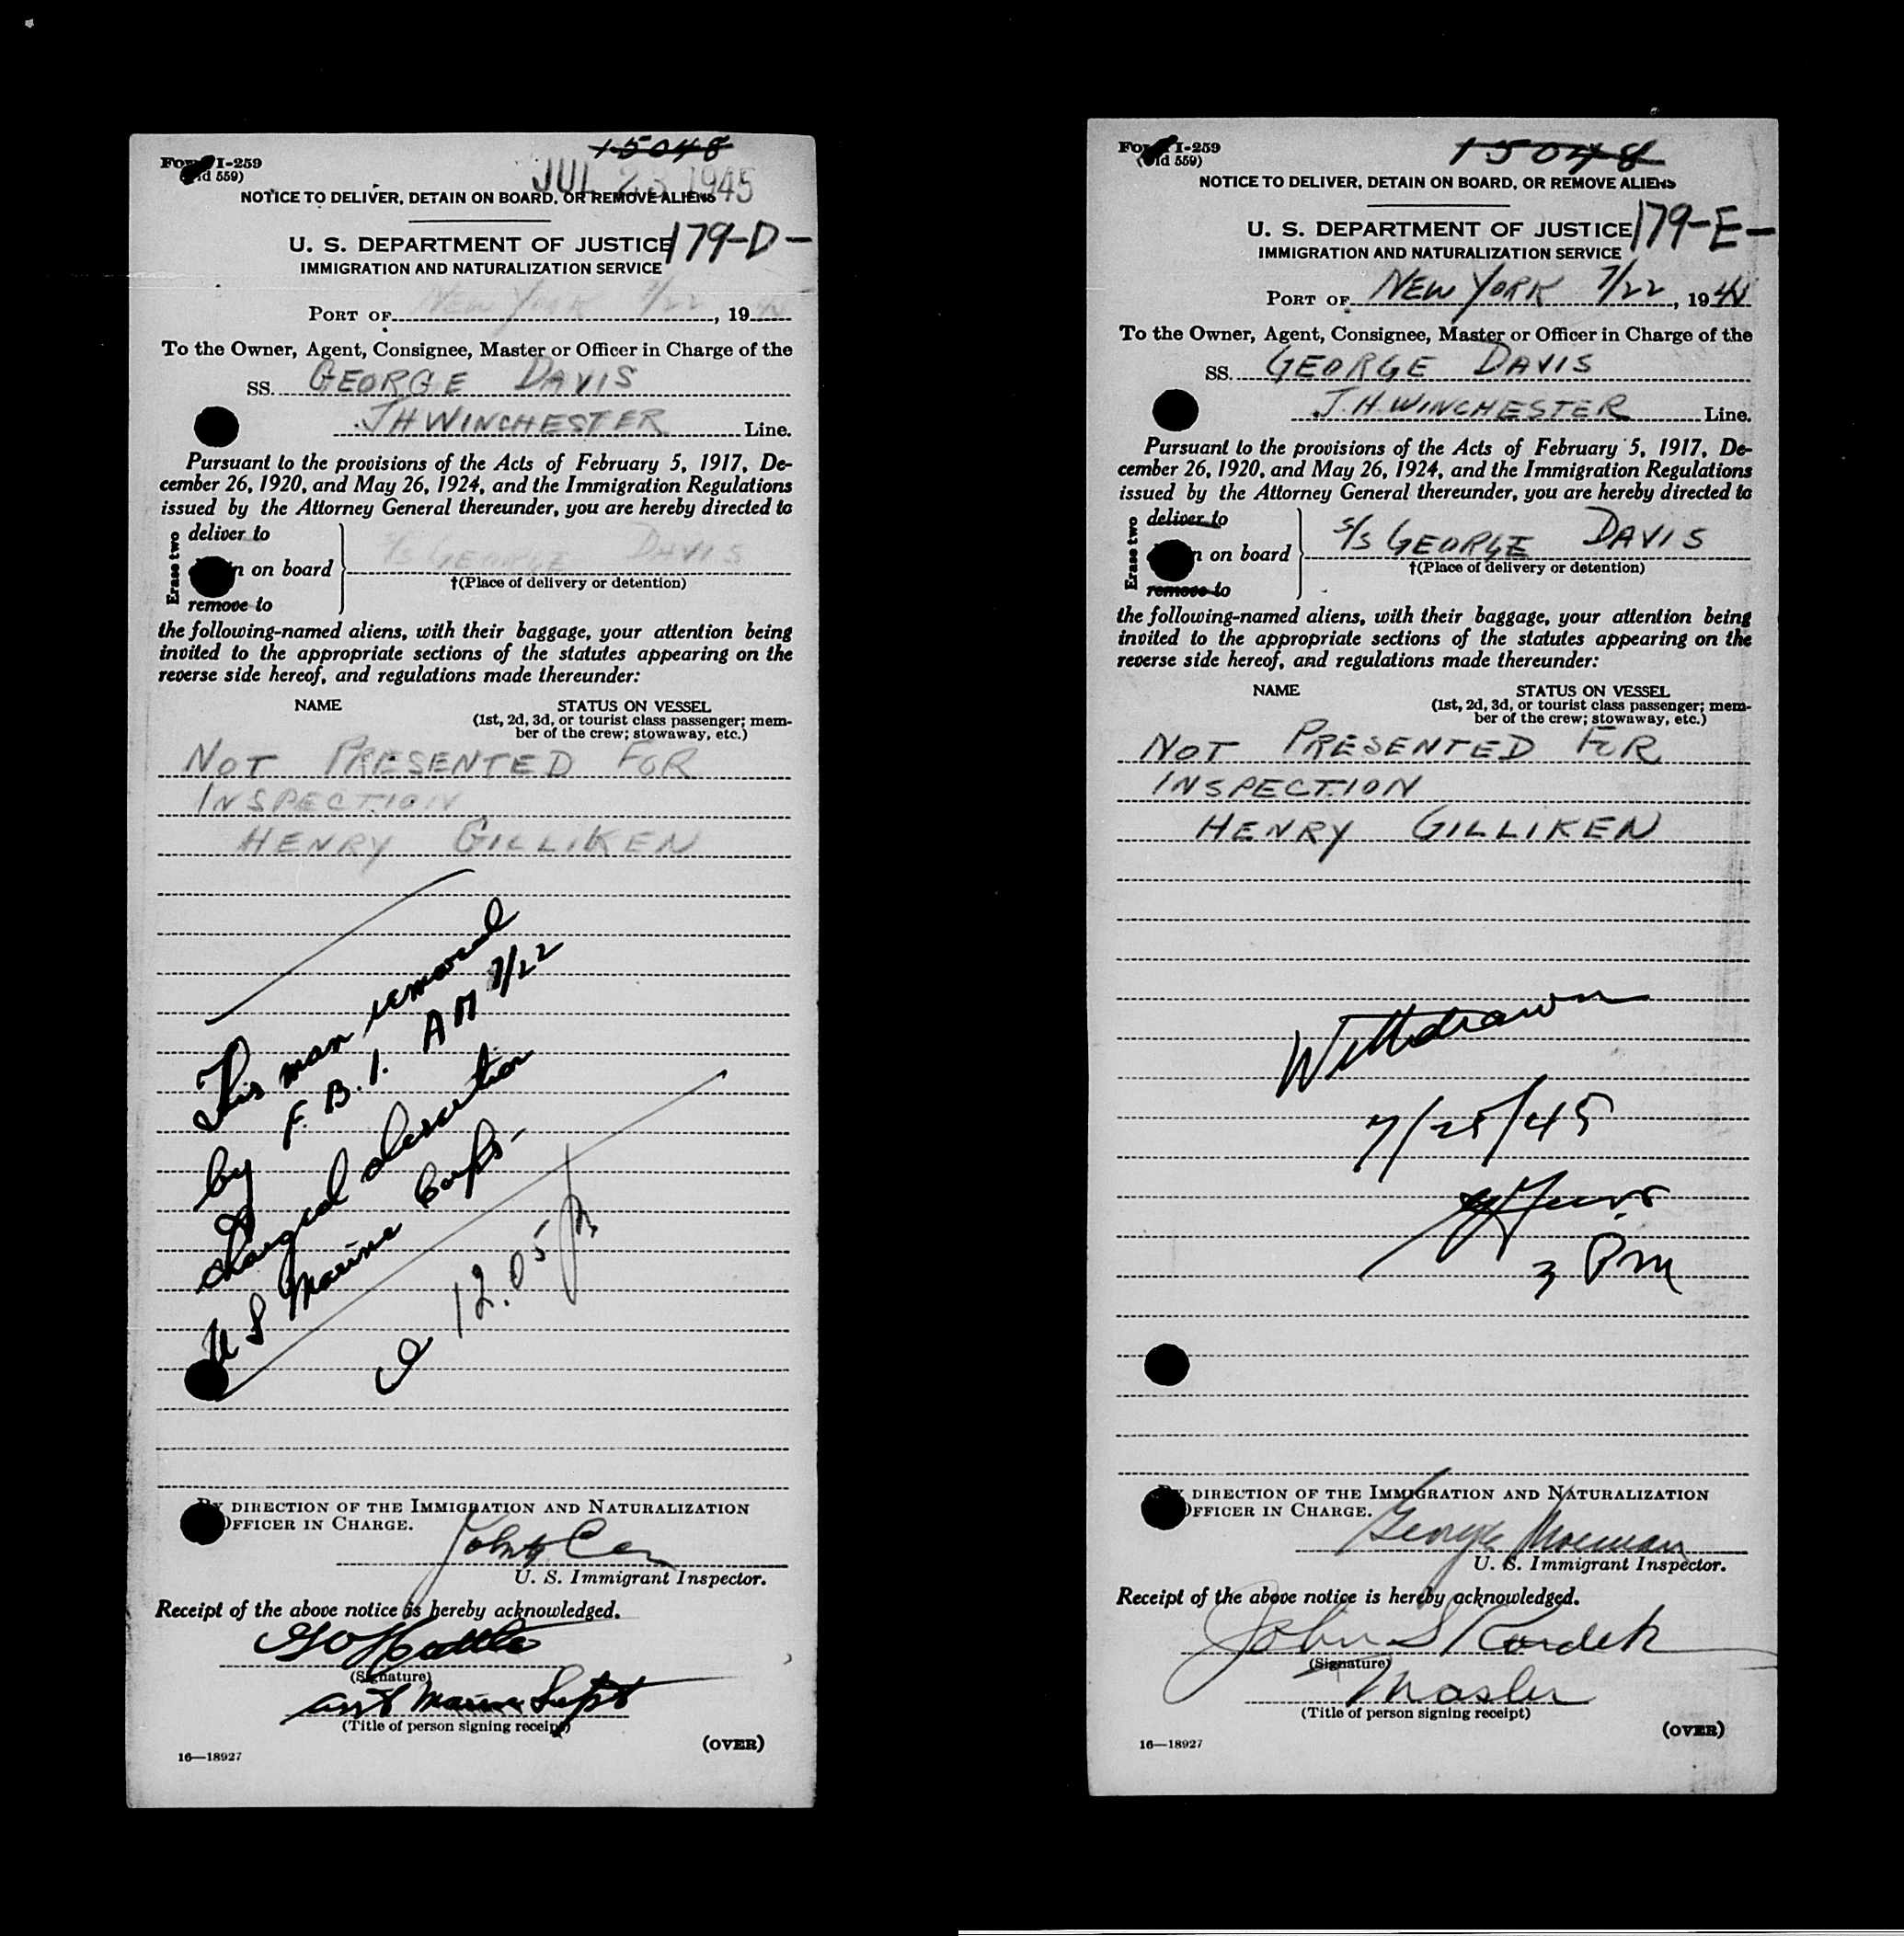 15048
Form I-259
(Old 559)
JUL 23 1945
NOTICE TO DELIVER, DETAIN ON BOARD, OR REMOVE ALIENS
U. S. DEPARTMENT OF JUSTICE
179-D-
IMMIGRATION AND NATURALIZATION SERVICE
PORT OF NEW YORK 7/22, 19
To the Owner, Agent, Consignee, Master or Officer in Charge of the
SS. GEORGE DAVIS
J H WINCHESTER Line.
Pursuant to the provisions of the Acts of February 5, 1917, De-
cember 26, 1920, and May 26, 1924, and the Immigration Regulations
issued by the Attorney General thereunder, you are hereby directed to
Erase two
deliver to
n on board
remove to
S/S GEORGE DAVIS
†(Place of delivery or detention)
the following-named aliens, with their baggage, your attention being
invited to the appropriate sections of the statutes appearing on the
reverse side hereof, and regulations made thereunder:
NAME STATUS ON VESSEL
(1st, 2d, 3d, or tourist class passenger; mem-
ber of the crew; stowaway, etc.)
NOT PRESENTED FOR
INSPECTION
HENRY GILLIKEN
This man removed
by F.B.I. AM 7/22
charged desertion
U S Marine Corps-
12.05
BY DIRECTION OF THE IMMIGRATION AND NATURALIZATION
OFFICER IN CHARGE.
John
U. S. Immigrant Inspector.
Receipt of the above notice is hereby acknowledged.
(Signature)
Asst Marine Supt
(Title of person signing receipt)
(OVER)
16—18927
15048
Form I-259
(Old 559)
NOTICE TO DELIVER, DETAIN ON BOARD, OR REMOVE ALIENS
U. S. DEPARTMENT OF JUSTICE
179-E-
IMMIGRATION AND NATURALIZATION SERVICE
PORT OF NEW YORK 7/22, 19
To the Owner, Agent, Consignee, Master or Officer in Charge of the
SS. GEORGE DAVIS
J.H. WINCHESTER Line.
Pursuant to the provisions of the Acts of February 5, 1917, De-
cember 26, 1920, and May 26, 1924, and the Immigration Regulations
issued by the Attorney General thereunder, you are hereby directed to
Erase two
deliver to
n on board
remove to
S/S GEORGE DAVIS
†(Place of delivery or detention)
the following-named aliens, with their baggage, your attention being
invited to the appropriate sections of the statutes appearing on the
reverse side hereof, and regulations made thereunder:
NAME STATUS ON VESSEL
(1st, 2d, 3d, or tourist class passenger; mem-
ber of the crew; stowaway, etc.)
NOT PRESENTED FOR
INSPECTION
HENRY GILLIKEN
Withdrawn
7/25/45
3 PM
BY DIRECTION OF THE IMMIGRATION AND NATURALIZATION
OFFICER IN CHARGE.
George
U. S. Immigrant Inspector.
Receipt of the above notice is hereby acknowledged.
John S Kordek
(Signature)
Master
(Title of person signing receipt)
(OVER)
16—18927